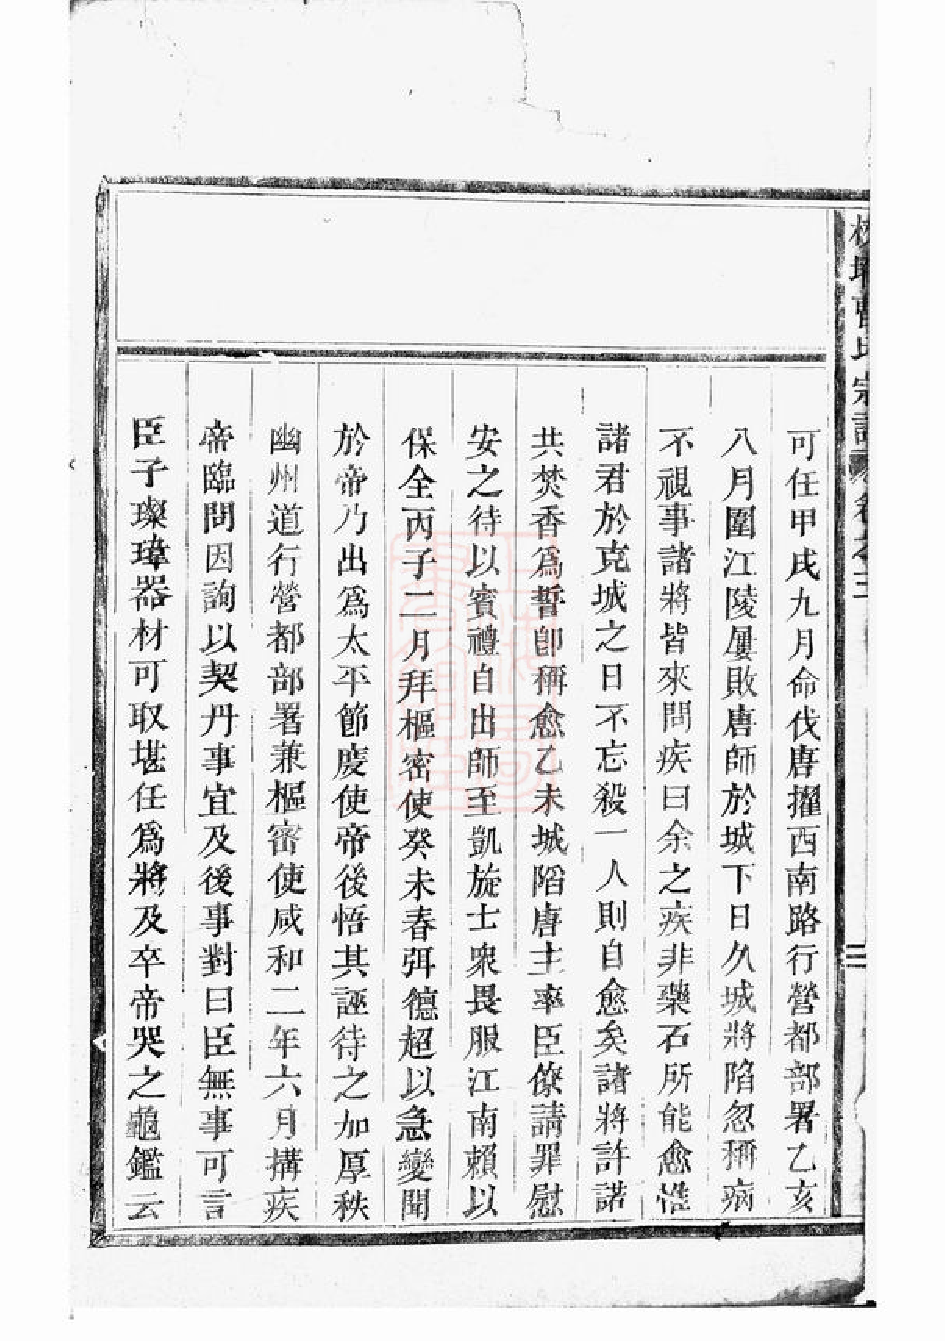 曹氏宗譜 卷之三
可任甲戌九月命伐唐擢西南路行營都部署乙亥
八月圍江陵屢敗唐師於城下日久城將陷忽稱病
不視事諸將皆來問疾曰余之疾非藥石所能愈惟
諸君於克城之日不忘殺一人則自愈矣諸將許諾
共焚香爲誓卽稱愈乙未城陷唐主率臣僚請罪慰
安之待以賓禮自出師至凱旋士衆畏服江南賴以
保全丙子二月拜樞密使癸未春弭德超以急變聞
於帝乃出爲太平節度使帝後悟其誣待之加厚秩
幽州道行營都部署兼樞密使咸和二年六月搆疾
帝臨問因詢以契丹事宜及後事對曰臣無事可言
臣子璨瑋器材可取堪任爲將及卒帝哭之龜鑑云